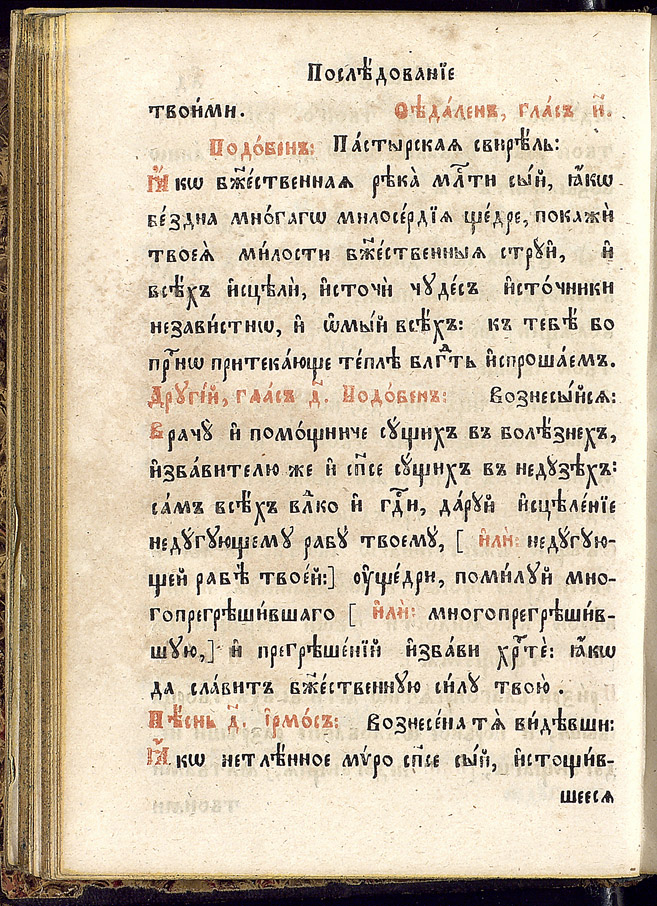 Послѣ́дованїе
твои́ми. Сѣда́ленъ, гла́съ и҃.
Подо́бенъ: Па́стырская свирѣ́ль:
Ꙗ҆́кѡ бж҃е́ственнаѧ рѣка̀ мл҃ти сы́й, ꙗ҆́кѡ
бе́здна мно́гагѡ милосе́рдїѧ ще́дре, покажѝ
твоеѧ̀ ми́лости бж҃е́ственныѧ струи̑, и҆
всѣ́хъ и҆сцѣлѝ, и҆сточѝ чꙋде́съ и҆сто́чники
незави́стнѡ, и҆ ѡ҆мы́й всѣ́хъ: къ тебѣ́ бо
при́снѡ притека́юще те́плѣ блгⷣть и҆спроша́емъ.
Дрꙋгі́й, гла́съ д҃. Подо́бенъ: Вознесы́йсѧ:
Врачꙋ̀ и҆ помо́щниче сꙋ́щихъ въ болѣ́знехъ,
и҆зба́вителю же и҆ сп҃се сꙋ́щихъ въ недꙋ́зѣхъ:
са́мъ всѣ́хъ влⷣко и҆ гдⷭ҇и, да́рꙋй и҆сцѣле́нїе
недꙋ́гꙋющемꙋ рабꙋ̀ твоемꙋ̀, [ и҆лѝ: недꙋ́гꙋю-
щей рабѣ̀ твое́й:] ᲂу҆ще́дри, поми́лꙋй мно-
гопрегрѣши́вшаго [ и҆лѝ: многопрегрѣши́в-
шꙋю,] и҆ прегрѣше́нїй и҆зба́ви хрⷭ҇тѐ: ꙗ҆́кѡ
да сла́витъ бж҃е́ственнꙋю си́лꙋ твою̀.
Пѣ́снь д҃. І҆рмо́съ: Вознесе́на тѧ̀ ви́дѣвши:
Ꙗ҆́кѡ нетлѣ́нное мѵ́ро сп҃се сы́й, и҆стощи́в-
шеесѧ